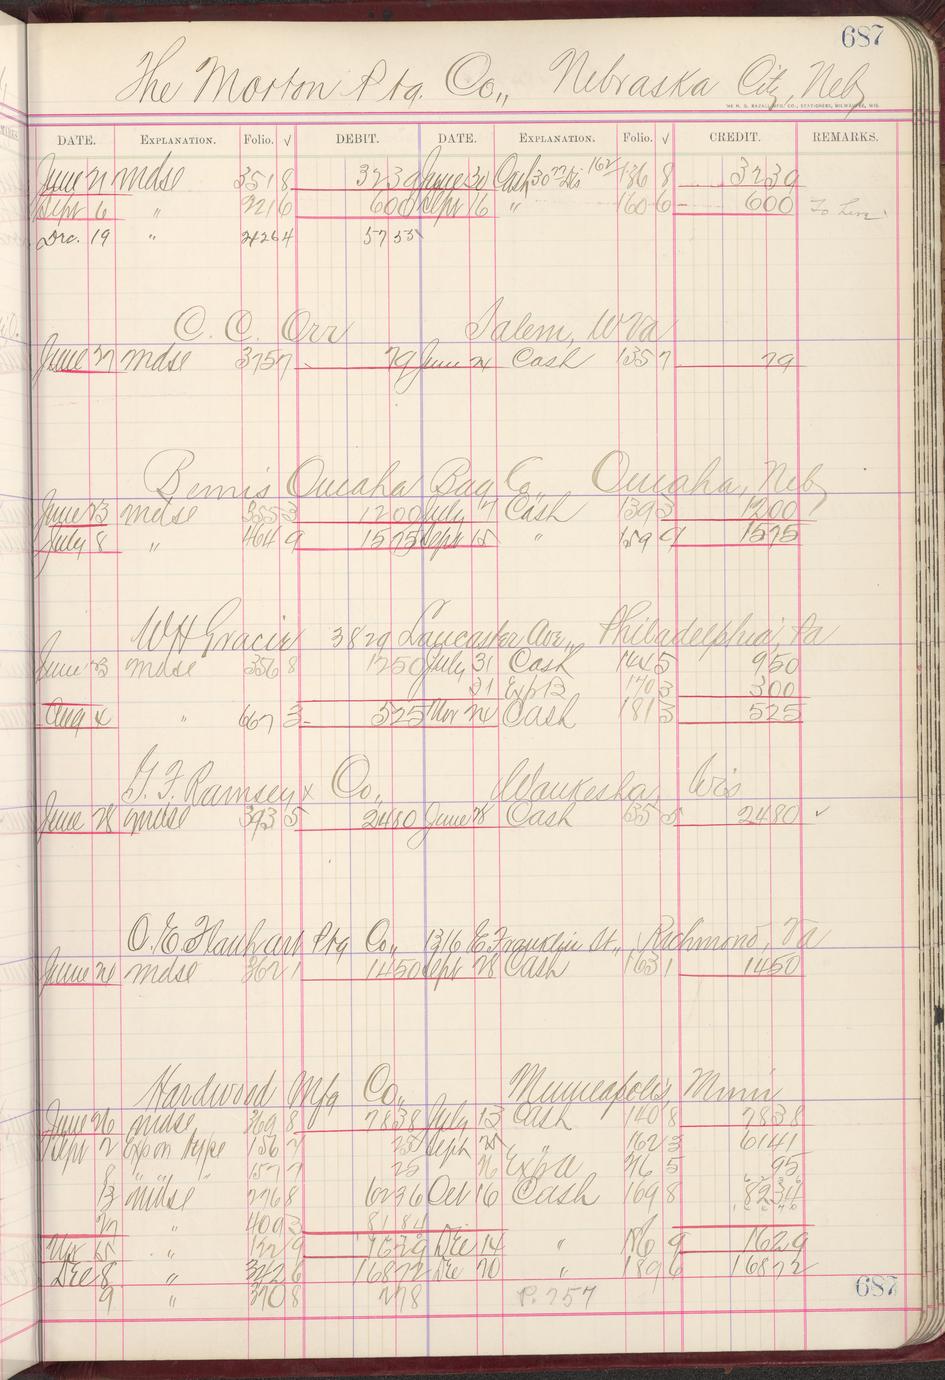 687
The Morton Ptg. Co., Nebraska City, Neb
THE H. G. RAZALL MFG. CO., STATIONERS, MILWAUKEE, WIS.
DATE. EXPLANATION. Folio. √ DEBIT. DATE. EXPLANATION. Folio. √ CREDIT. REMARKS.
June 21 mdse 351 8 3239 June 30 Cash 136 8 3239
Sept 6 " 221 6 600 Sept 16 " 160 6 600
Dec. 19 " 426 4 5755
C. C. Orr Salem, W Va
June 27 mdse 375 7 79 June 24 Cash 135 7 79
Bemis Omaha Bag Co Omaha, Neb
June 23 mdse 355 3 1200 July 17 Cash 139 3 1200
July 8 " 464 9 1575 Sept 15 " 159 9 1575
W H Gracie 3829 Lancaster Ave., Philadelphia, Pa
June 23 mdse 356 8 1250 July 31 Cash 144 5 950
31 170 3 300
Aug 4 " 667 3 525 Nov 24 Cash 181 3 525
G. F. Ramsey & Co., Waukesha, Wis
June 28 mdse 393 5 2480 June 28 Cash 135 5 2480 ✓
O. E. Flanhart Ptg Co., 1316 E Franklin St., Richmond, Va
June 24 mdse 362 1 1450 Sept 28 Cash 163 1 1450
Hardwood Mfg Co., Minneapolis, Minn
June 26 mdse 369 8 7838 July 13 Cash 140 8 7838
Sept 2 Exp on type 156 7 25 Sept 25 " 162 3 6141
8 " " " 157 7 25 26 Exp a 76 5 95
12 mdse 226 8 6296 Oct 16 Cash 169 8 8234
27 " 400 3 8184
Nov 15 " 122 9 1629 Dec 14 " 186 9 1629
Dec 8 " 342 6 16822 Dec 20 " 189 6 16822
9 " 370 8 278 P. 257
687